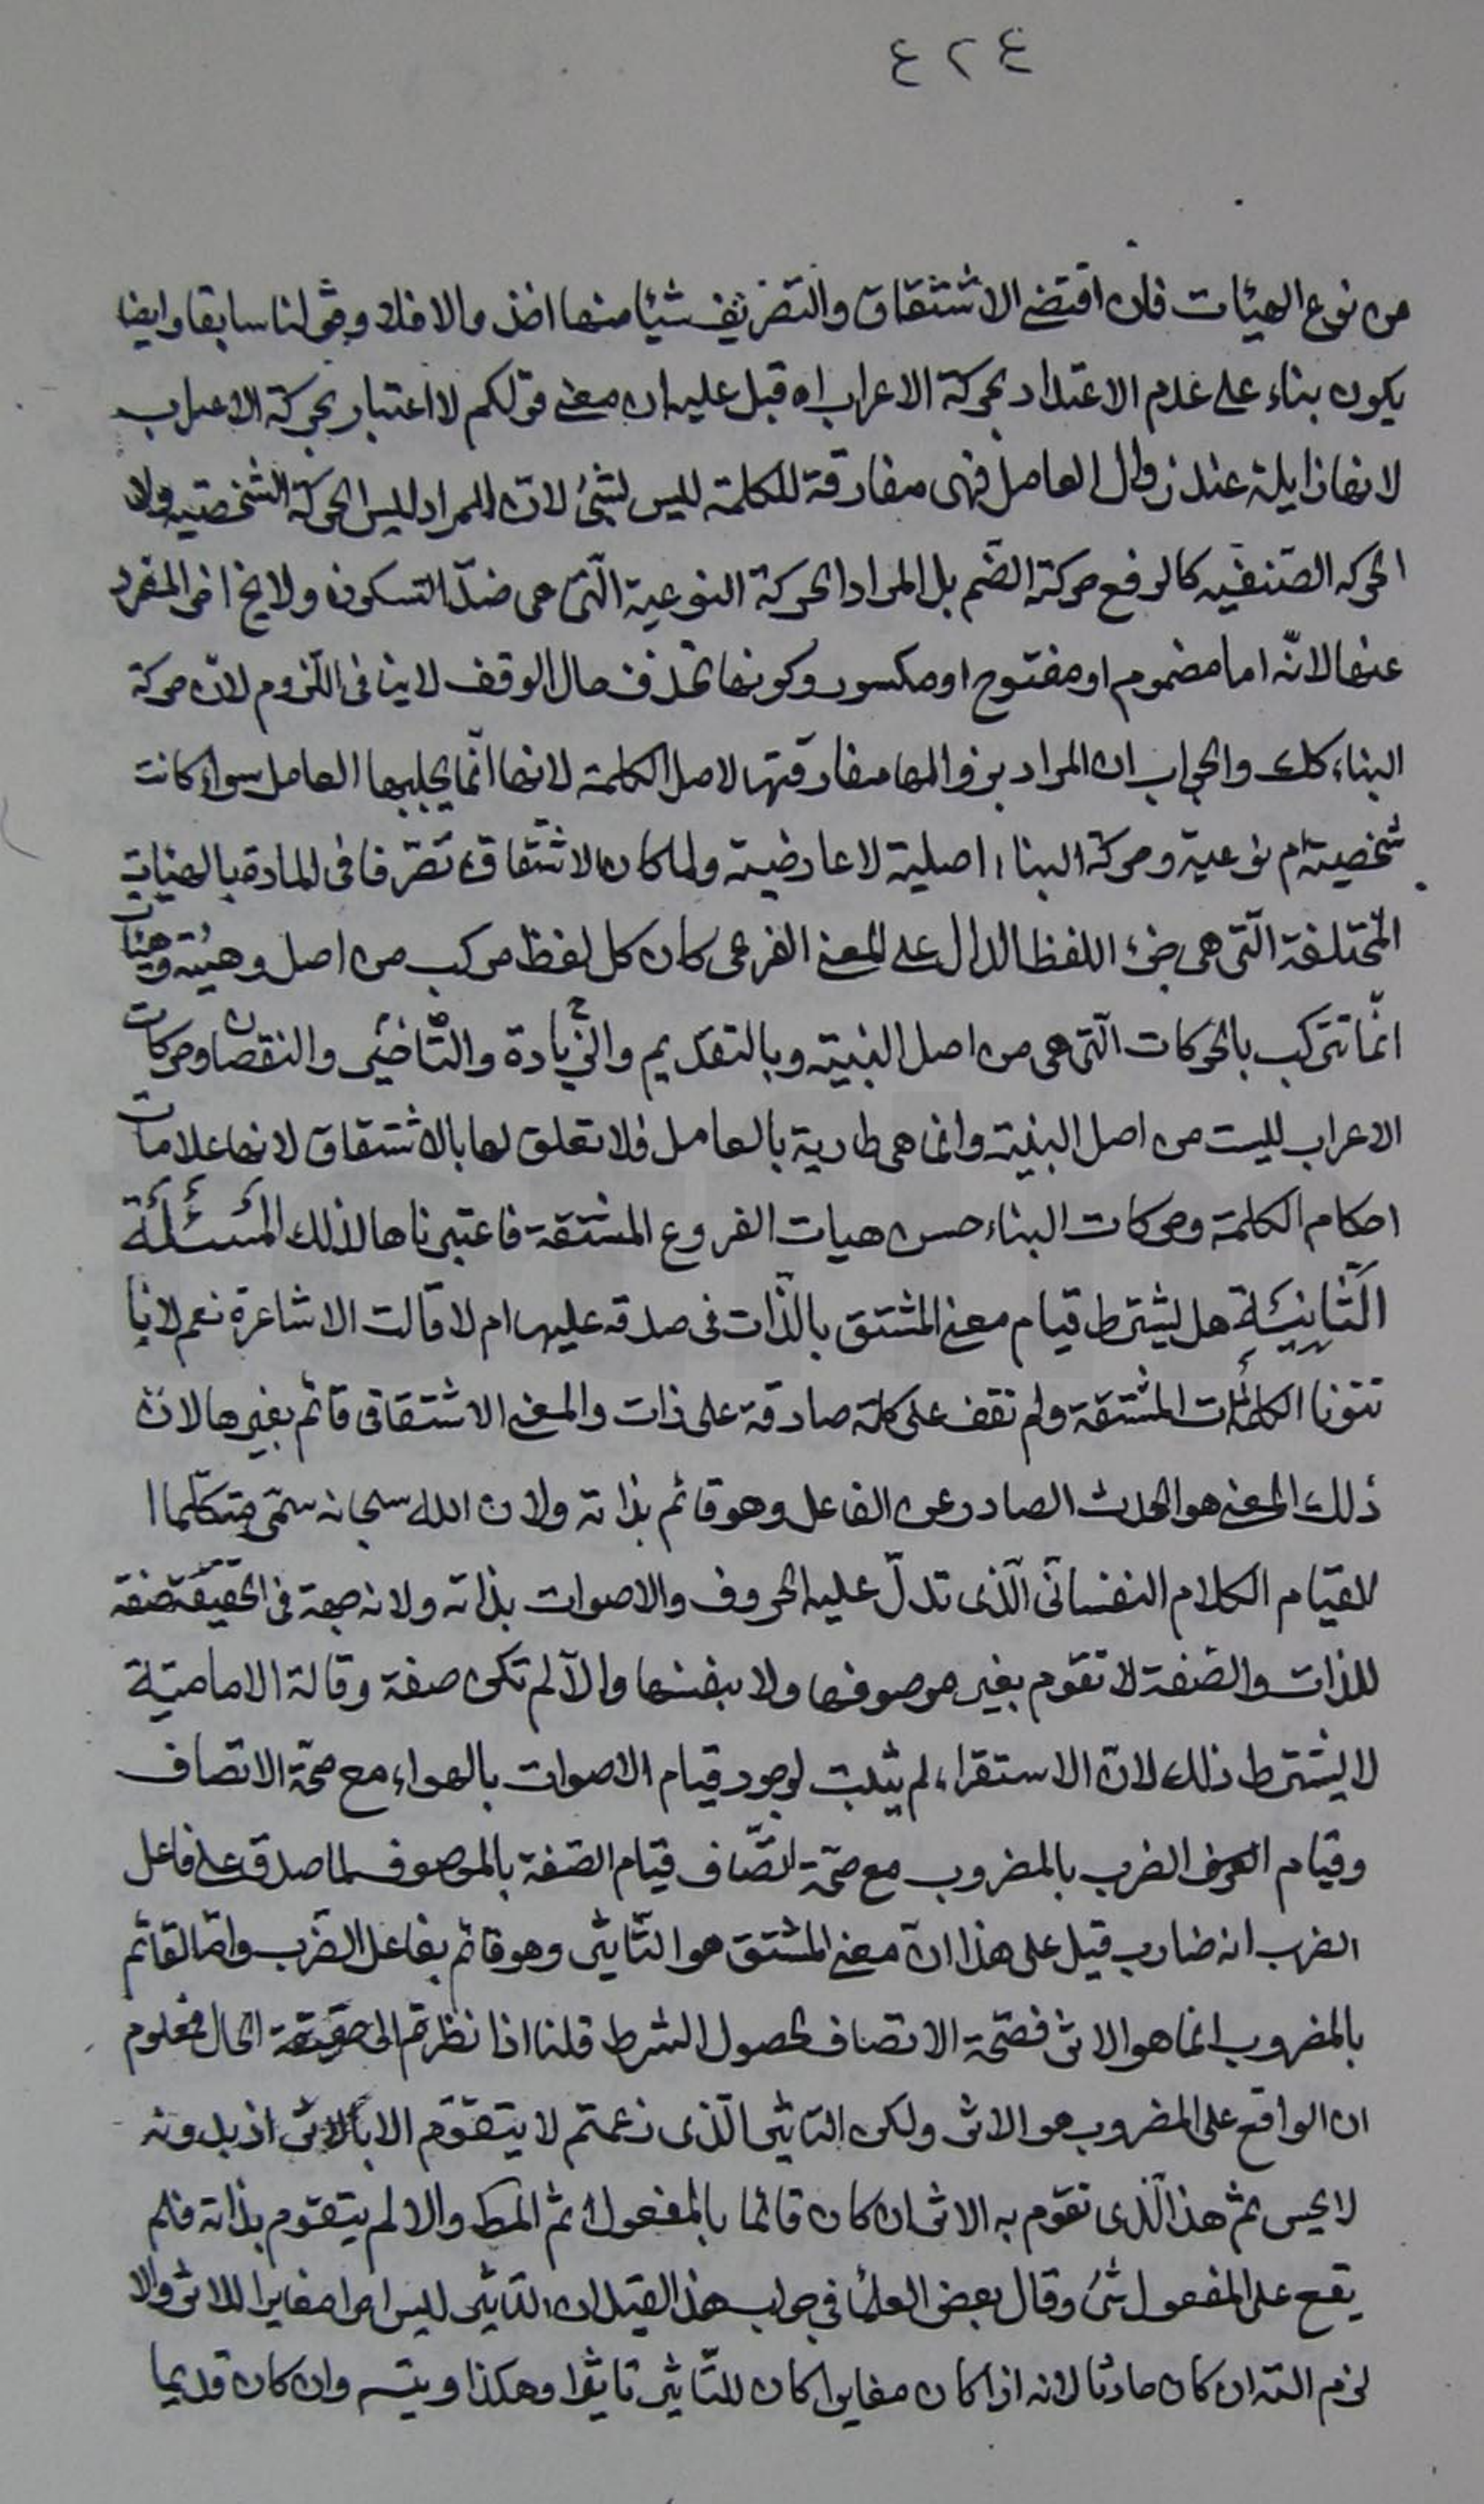 ٤٢٤
من نوع الهيئات فان اقتضى الاشتقاق والتصريف شيئا منها اخذ والا فلا وقولنا سابقا وايضا
يكون بناء على عدم الاعتداد بحركة الاعراب اه قيل عليه ان معنى قولكم لا اعتبار بحركة الاعراب
لانها زايلة عند زوال العامل فهى مفارقة للكلمة ليس بشئ لان المراد ليس الحركة الشخصية ولا
الحركه الصنفيه كالرفع حركة الضم بل المراد الحركة النوعية الّتى هى ضدّ السكون ولا يخ اخر المفرد
عنها لانّه اما مضموم او مفتوح او مكسور وكونها تحذف حال الوقف لا ينافى اللزوم لان حركة
البناء كلك والجواب ان المراد بزوالها مفارقتها لاصل الكلمة لانها انّما يجلبها العامل سواء كانت
شخصية ام نوعية وحركة البناء اصلية لا عارضية ولما كان الاشتقاق تصرّفا فى المادة بالهيئات
المختلفة الّتى هى جزء اللفظ الدال على المعنى الفرعى كان كل لفظ مركب من اصل وهيئة وهيئات
انّما تتركب بالحركات الّتى هى من اصل البنية وبالتقديم والزّيادة والتّاخير والنقصان وحركات
الاعراب ليست من اصل البنية وانما هى طارية بالعامل فلا تعلق لها بالاشتقاق لانها علامات
احكام الكلمة وحركات البناء حسن هيات الفروع المشتقة فاعتبرناها لذلك المسئلة
الثّانية هل يشترط قيام معنى المشتق بالذّات فى صدقه عليها ام لا قالت الاشاعرة نعم لانا
تتبّعنا الكلمات المشتقة ولم نقف على كلمة صادقة على ذات والمعنى الاشتقاقى قائم بغيرها لان
ذلك المعنى هو الحدث الصادر عن الفاعل وهو قائم بذاته ولان الله سبحانه سمّى متكلّما
لقيام الكلام النفسانى الّذى تدلّ عليه الحروف والاصوات بذاته ولانه جهة فى الحقيقة صفة
للذات والصّفة لا تقوم بغير موصوفها ولا بنفسها والّا لم تكن صفة وقالة الاماميّة
لا يشترط ذلك لانّ الاستقراء لم يثبت لوجود قيام الاصوات بالهواء مع صحّة الاتصاف
وقيام الضرب بالمضروب مع صحّة اتّصاف قيام الصّفة بالموصوف لما صدق على فاعل
الضرب انه ضارب قيل على هذا انّ معنى المشتق هو التّأثير وهو قائم بفاعل الضّرب وامّا القائم
بالمضروب انما هو الاثر فصحّة الاتصاف لحصول الشرط قلنا اذا نظرتم الى حقيقة الحال فمعلوم
ان الواقع على المضروب هو الاثر ولكن التاثير الّذى زعمتم لا يتقوّم الا بالاثر اذ بدونه
لا يحس ثم هذا الّذى تقوم به الاثر ان كان قائما بالمفعول ثم المط والا لم يتقوم بذاته فلم
يقع على المفعول شئ وقال بعض العلما فى جواب هذا القيل ان التاثير ليس امرا مغايرا للاثر والا
لزم التة ان كان حادثا لانه اذا كان مغايرا كان للتّاثير تاثيرا وهكذا ويتسم وان كان قديما